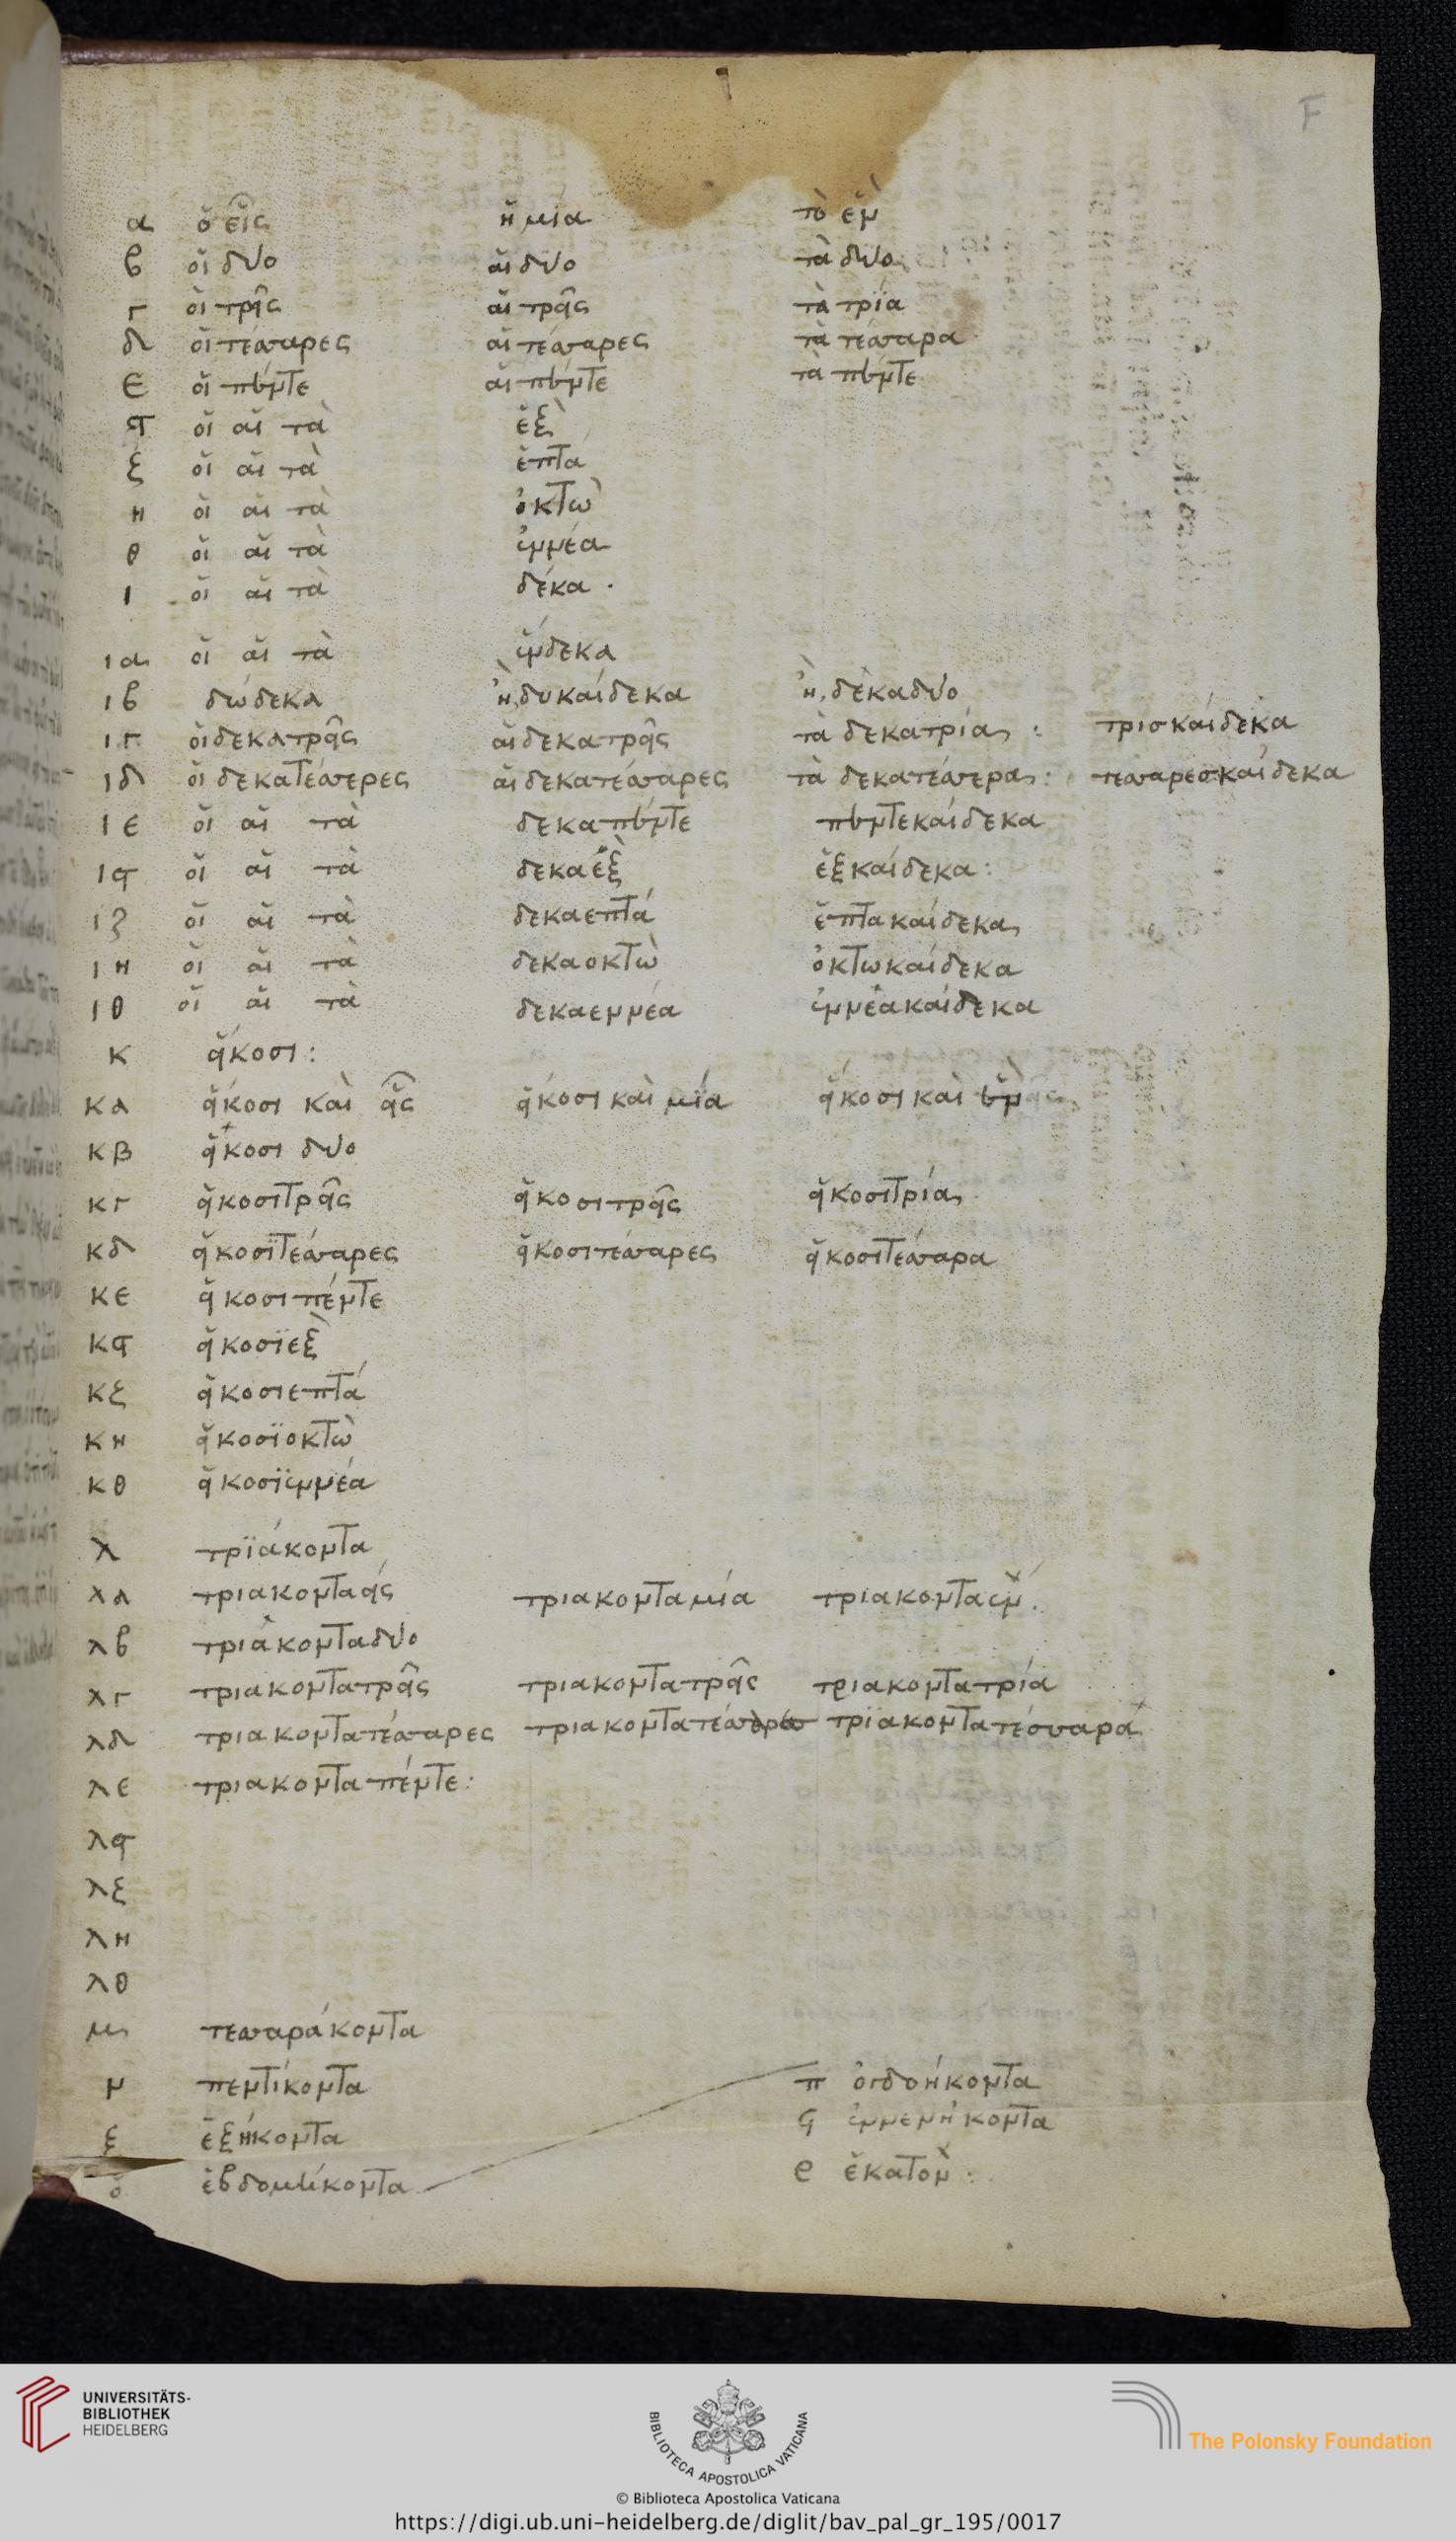 F
α ὁ εἷς ἡ μία τὸ ἓν
β οἱ δύο αἱ δύο τὰ δύο
γ οἱ τρεῖς αἱ τρεῖς τὰ τρία
δ οἱ τέσσαρες αἱ τέσσαρες τὰ τέσσαρα
ε οἱ πέντε αἱ πέντε τὰ πέντε
ϛ οἱ αἱ τὰ ἓξ
ξ οἱ αἱ τὰ ἑπτά
η οἱ αἱ τὰ ὀκτὼ
θ οἱ αἱ τὰ ἐννέα
ι οἱ αἱ τὰ δέκα ·
ια οἱ αἱ τὰ ἕνδεκα
ιβ δώδεκα ἢ, δυκαίδεκα ἢ, δέκαδύο
ιγ οἱ δεκατρεῖς αἱ δεκατρεῖς τὰ δεκατρία : τρισκαίδεκα
ιδ οἱ δεκατέσσερες αἱ δεκατέσσαρες τὰ δεκατέσσερα : τεσσαρεσκαίδεκα
ιε οἱ αἱ τὰ δεκαπέντε πεντεκαίδεκα
ιϛ οἱ αἱ τὰ δεκαὲξ ἑξκαίδεκα :
ιζ οἱ αἱ τὰ δεκαεπτά ἑπτακαίδεκα
ιη οἱ αἱ τὰ δεκαοκτὼ ὀκτωκαίδεκα
ιθ οἱ αἱ τὰ δεκαεννέα ἐννέακαίδεκα
κ εἴκοσι :
κα εἴκοσι καὶ εἷς εἴκοσι καὶ μία εἴκοσι καὶ ἓν
κβ εἴκοσι δύο
κγ εἴκοσιτρεῖς εἴκοσιτρεῖς εἴκοσιτρία
κδ εἴκοσιτέσσαρες εἴκοσιτέσσαρες εἴκοσιτέσσαρα
κε εἴκοσιπέντε
κϛ εἴκοσϊεξ
κξ εἴκοσιεπτά
κη εἴκοσϊοκτὼ
κθ εἴκοσϊεννέα
λ τρϊάκοντα
λα τριακονταείς τριακονταμία τριακονταὲν .
λβ τριάκονταδύο
λγ τριακοντατρεῖς τριακοντατρεῖς τριακοντατρία
λδ τριακοντατέσσαρες τριακοντατέσσαρες τρϊακοντατέσσαρα
λε τριακονταπέντε :
λϛ
λξ
λη
λθ
μ τεσσαράκοντα
ν πεντίκοντα π ὀγδοήκοντα
ξ ἑξήκοντα ϟ ἐννενήκοντα
ο ἑβδομίκοντα ρ ἑκατὸν :
UNIVERSITÄTS-
BIBLIOTHEK
HEIDELBERG
BIBLIOTECA APOSTOLICA VATICANA
The Polonsky Foundation
© Biblioteca Apostolica Vaticana
https://digi.ub.uni-heidelberg.de/diglit/bav_pal_gr_195/0017